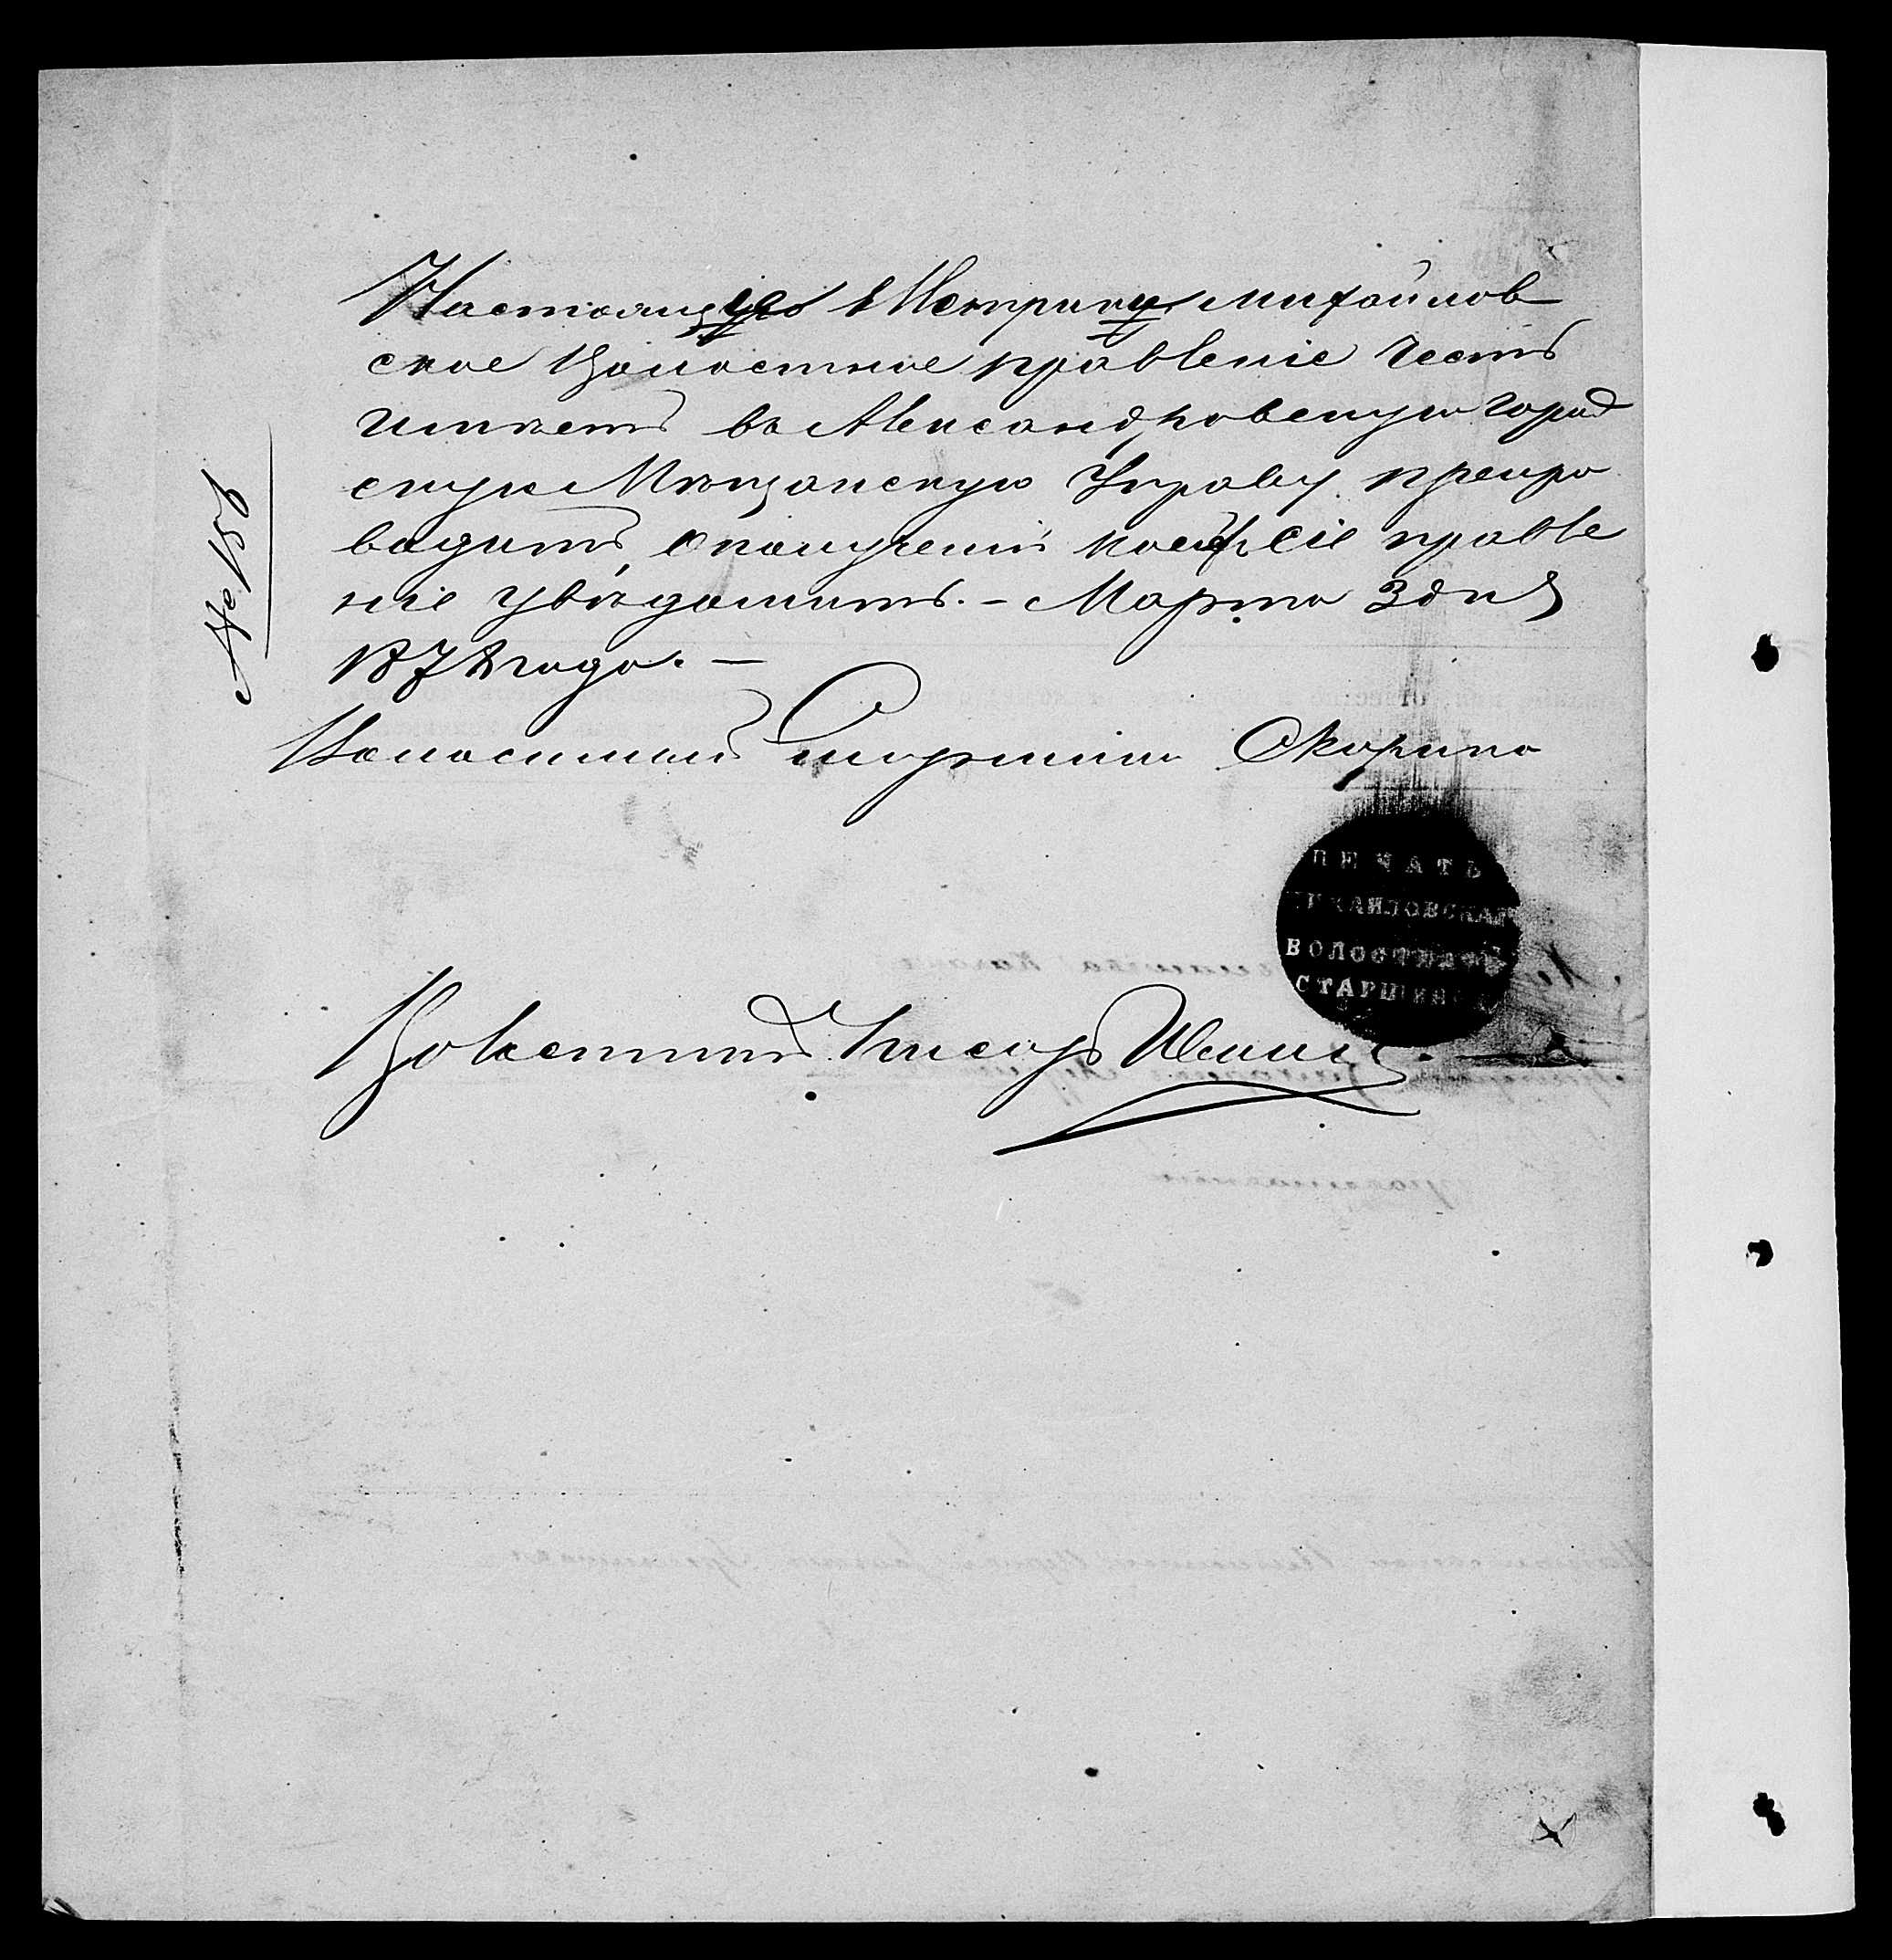 Настоящую Метрику Михайлов
ское Волостное правленіе Честь
имѣетъ въ Александровскую Город
скую Мѣщанскую Управу препро
водить, о полученіи коей сіе правле
ніе увѣдомить. - Марта 3 дня
187 года. -
№ 156
Волостный Старшина Скорина
ПЕЧАТЬ
МИХАЙЛОВСКАГ
ВОЛОСТНАГО
СТАРШИН
Волостный Писарь